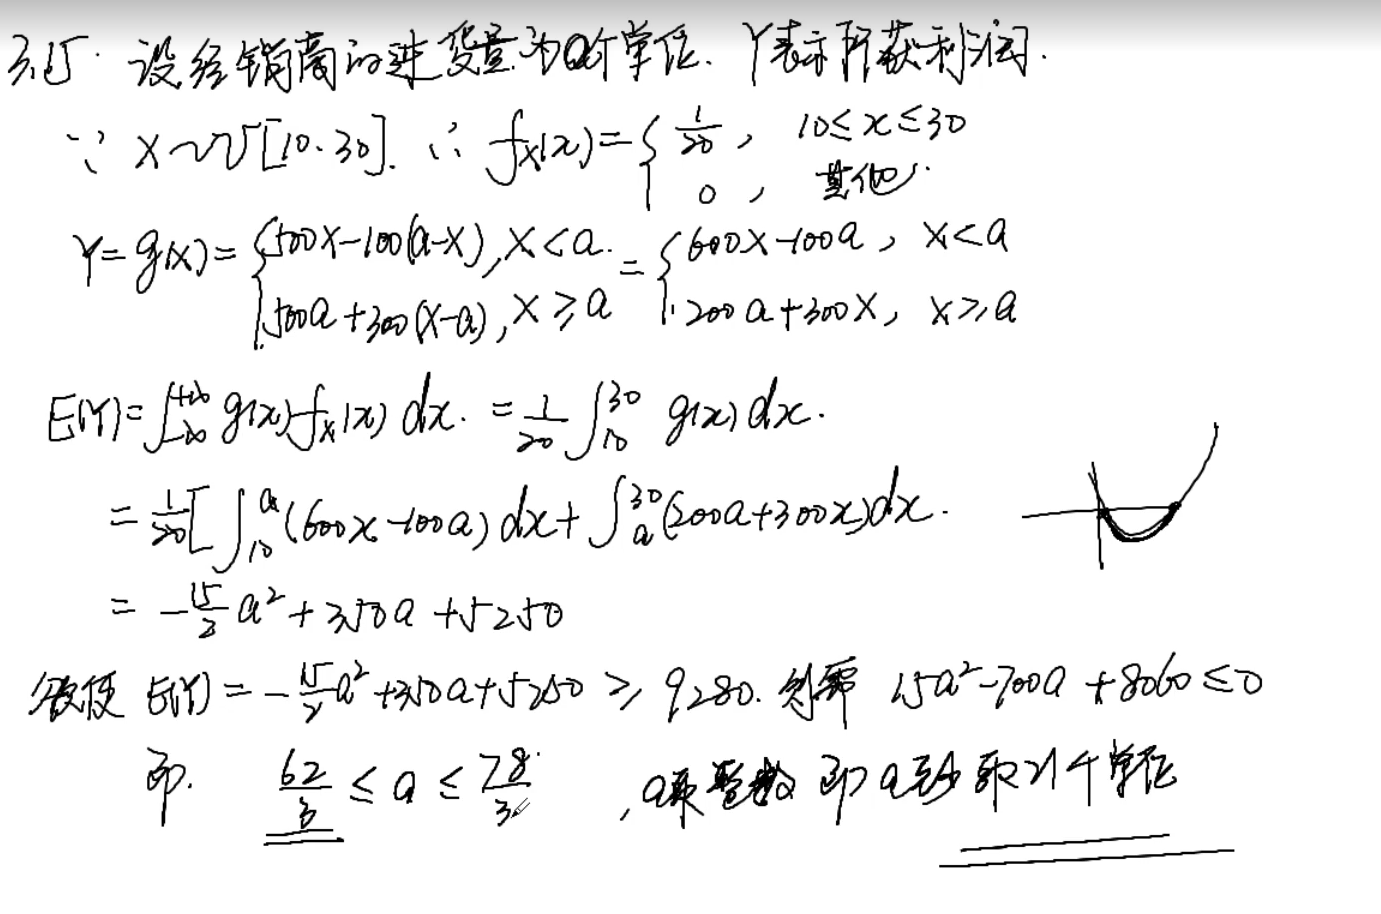 3.15. 设经销商的进货量为a个单位. Y表示所获利润.
∵ X~U[10.30]. ∴ fx(x)={ 1/20, 10≤x≤30
0, 其他.
Y=g(x)={ 500X-100(a-X), X<a. = { 600X-100a, X<a
500a+300(X-a), X≥a 200a+300X, X≥a
E(Y)=∫_{-∞}^{+∞} g(x)fx(x) dx. = 1/20 ∫_{10}^{30} g(x) dx.
= 1/20 [ ∫_{10}^{a} (600x-100a) dx + ∫_{a}^{30} (200a+300x) dx.
= -15/2 a² + 350a + 5250
欲使 E(Y) = -15/2 a² + 350a + 5250 ≥ 9280. 则需 15a²-700a+8060≤0
即. 62/3 ≤ a ≤ 78/3, a取整数 即a至少取21个单位